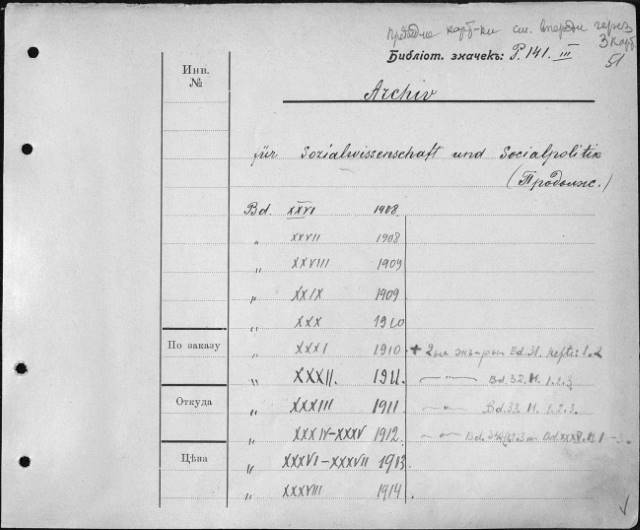 см. впереди через
3 карт.
51
Библіот. значекъ: P. 141. III
Инв.
№
Archiv
für Sozialwissenschaft und Socialpolitik
(Продолж.)
Bd. XXVI 1908
" XXVII 1908
" XXVIII 1909
" XXIX 1909
" XXX 1910
По заказу
" XXXI 1910 + 2ые экз-ры Bd. 31. Heft: 1.2
" XXXII. 1911. Bd. 32. H. 1.2.3
Откуда
" XXXIII 1911 Bd. 33. H. 1.2.3.
" XXXIV-XXXV 1912.
Цѣна
" XXXVI-XXXVII 1913
" XXXVIII 1914.